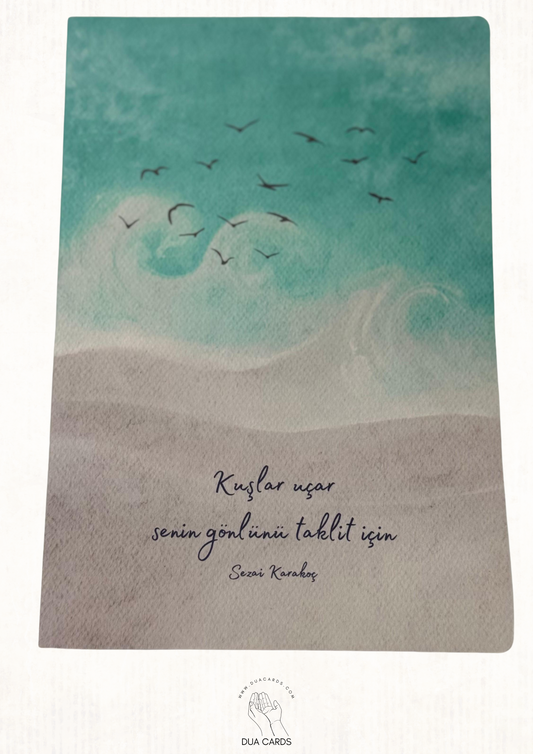 Kuşlar uçar
senin gönlünü taklit için
Sezai Karakoç
WWW.DUACARDS.COM
DUA CARDS